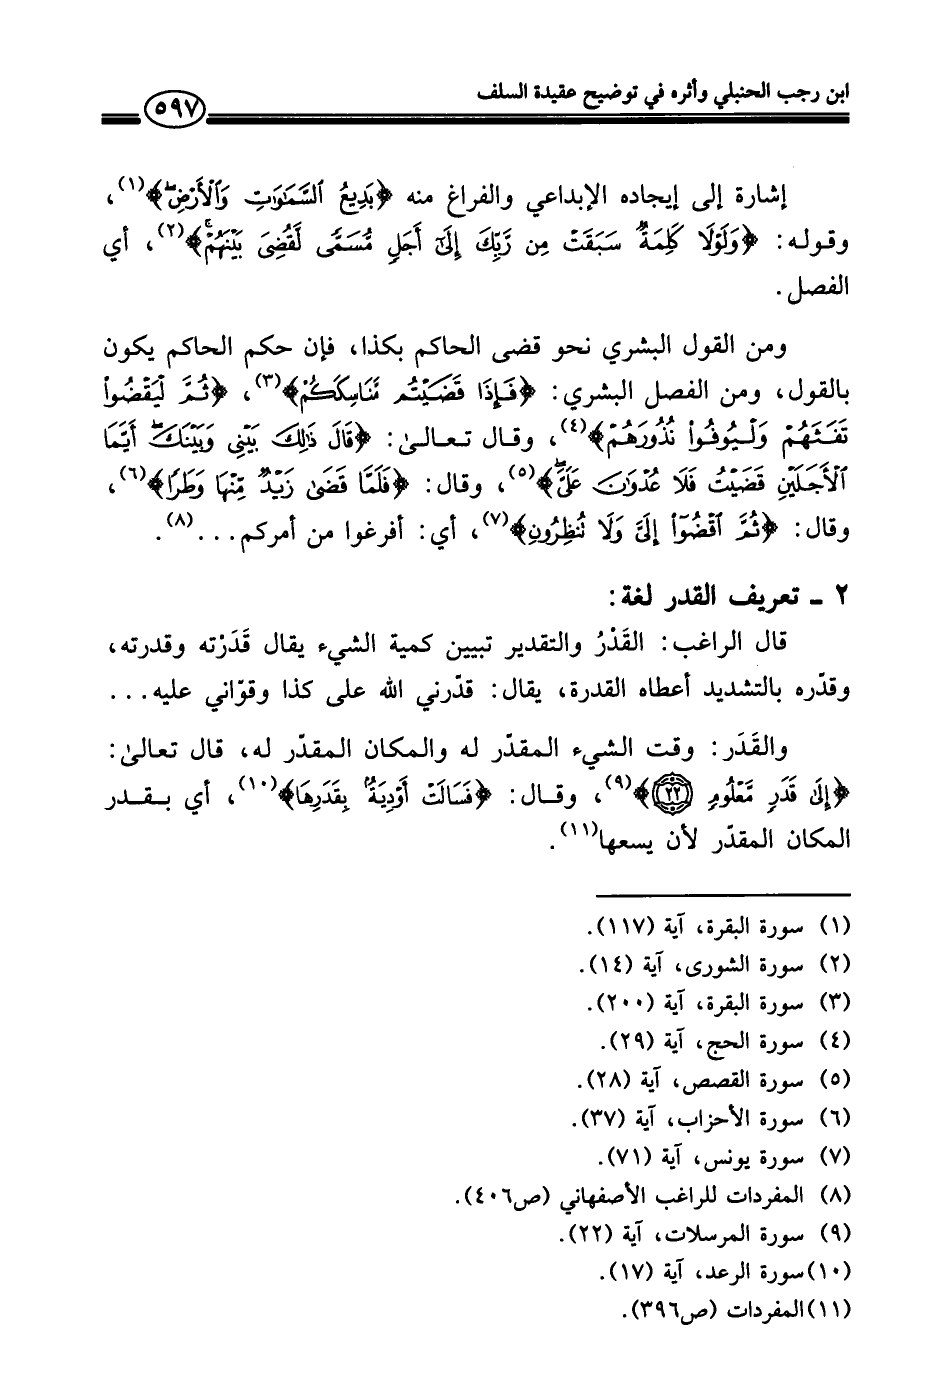 ابن رجب الحنبلي وأثره في توضيح عقيدة السلف
٥٩٧
إشارة إلى إيجاده الإبداعي والفراغ منه ﴿بَدِيعُ ٱلسَّمَٰوَٰتِ وَٱلْأَرْضِۖ﴾(١)،
وقوله: ﴿وَلَوْلَا كَلِمَةٌ سَبَقَتْ مِن رَّبِّكَ إِلَىٰٓ أَجَلٍ مُّسَمًّى لَّقُضِىَ بَيْنَهُمْۚ﴾(٢)، أي
الفصل.
ومن القول البشري نحو قضى الحاكم بكذا، فإن حكم الحاكم يكون
بالقول، ومن الفصل البشري: ﴿فَإِذَا قَضَيْتُم مَّنَاسِكَكُمْ﴾(٣)، ﴿ثُمَّ لْيَقْضُوا۟
تَفَثَهُمْ وَلْيُوفُوا۟ نُذُورَهُمْ﴾(٤)، وقال تعالىٰ: ﴿قَالَ ذَٰلِكَ بَيْنِى وَبَيْنَكَۖ أَيَّمَا
ٱلْأَجَلَيْنِ قَضَيْتُ فَلَا عُدْوَٰنَ عَلَىَّۖ﴾(٥)، وقال: ﴿فَلَمَّا قَضَىٰ زَيْدٌ مِّنْهَا وَطَرًا﴾(٦)،
وقال: ﴿ثُمَّ ٱقْضُوٓا۟ إِلَىَّ وَلَا تُنظِرُونِ﴾(٧)، أي: أفرغوا من أمركم...(٨).
٢ ـ تعريف القدر لغة:
قال الراغب: القَدْرُ والتقدير تبيين كمية الشيء يقال قَدَرْته وقدرته،
وقدّره بالتشديد أعطاه القدرة، يقال: قدّرني الله على كذا وقوّاني عليه...
والقَدَر: وقت الشيء المقدّر له والمكان المقدّر له، قال تعالىٰ:
﴿إِلَىٰ قَدَرٍ مَّعْلُومٍ ٢٢﴾(٩)، وقال: ﴿فَسَالَتْ أَوْدِيَةٌۢ بِقَدَرِهَا﴾(١٠)، أي بقدر
المكان المقدّر لأن يسعها(١١).
(١) سورة البقرة، آية (١١٧).
(٢) سورة الشورى، آية (١٤).
(٣) سورة البقرة، آية (٢٠٠).
(٤) سورة الحج، آية (٢٩).
(٥) سورة القصص، آية (٢٨).
(٦) سورة الأحزاب، آية (٣٧).
(٧) سورة يونس، آية (٧١).
(٨) المفردات للراغب الأصفهاني (ص٤٠٦).
(٩) سورة المرسلات، آية (٢٢).
(١٠) سورة الرعد، آية (١٧).
(١١) المفردات (ص٣٩٦).